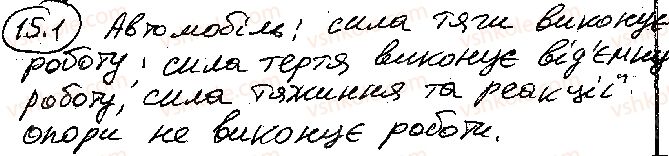 15.1 Автомобіль; сила тяги виконує
роботу; сила тертя виконує від'ємну
роботу, сила тяжиння та реакції
опори не виконує роботи.